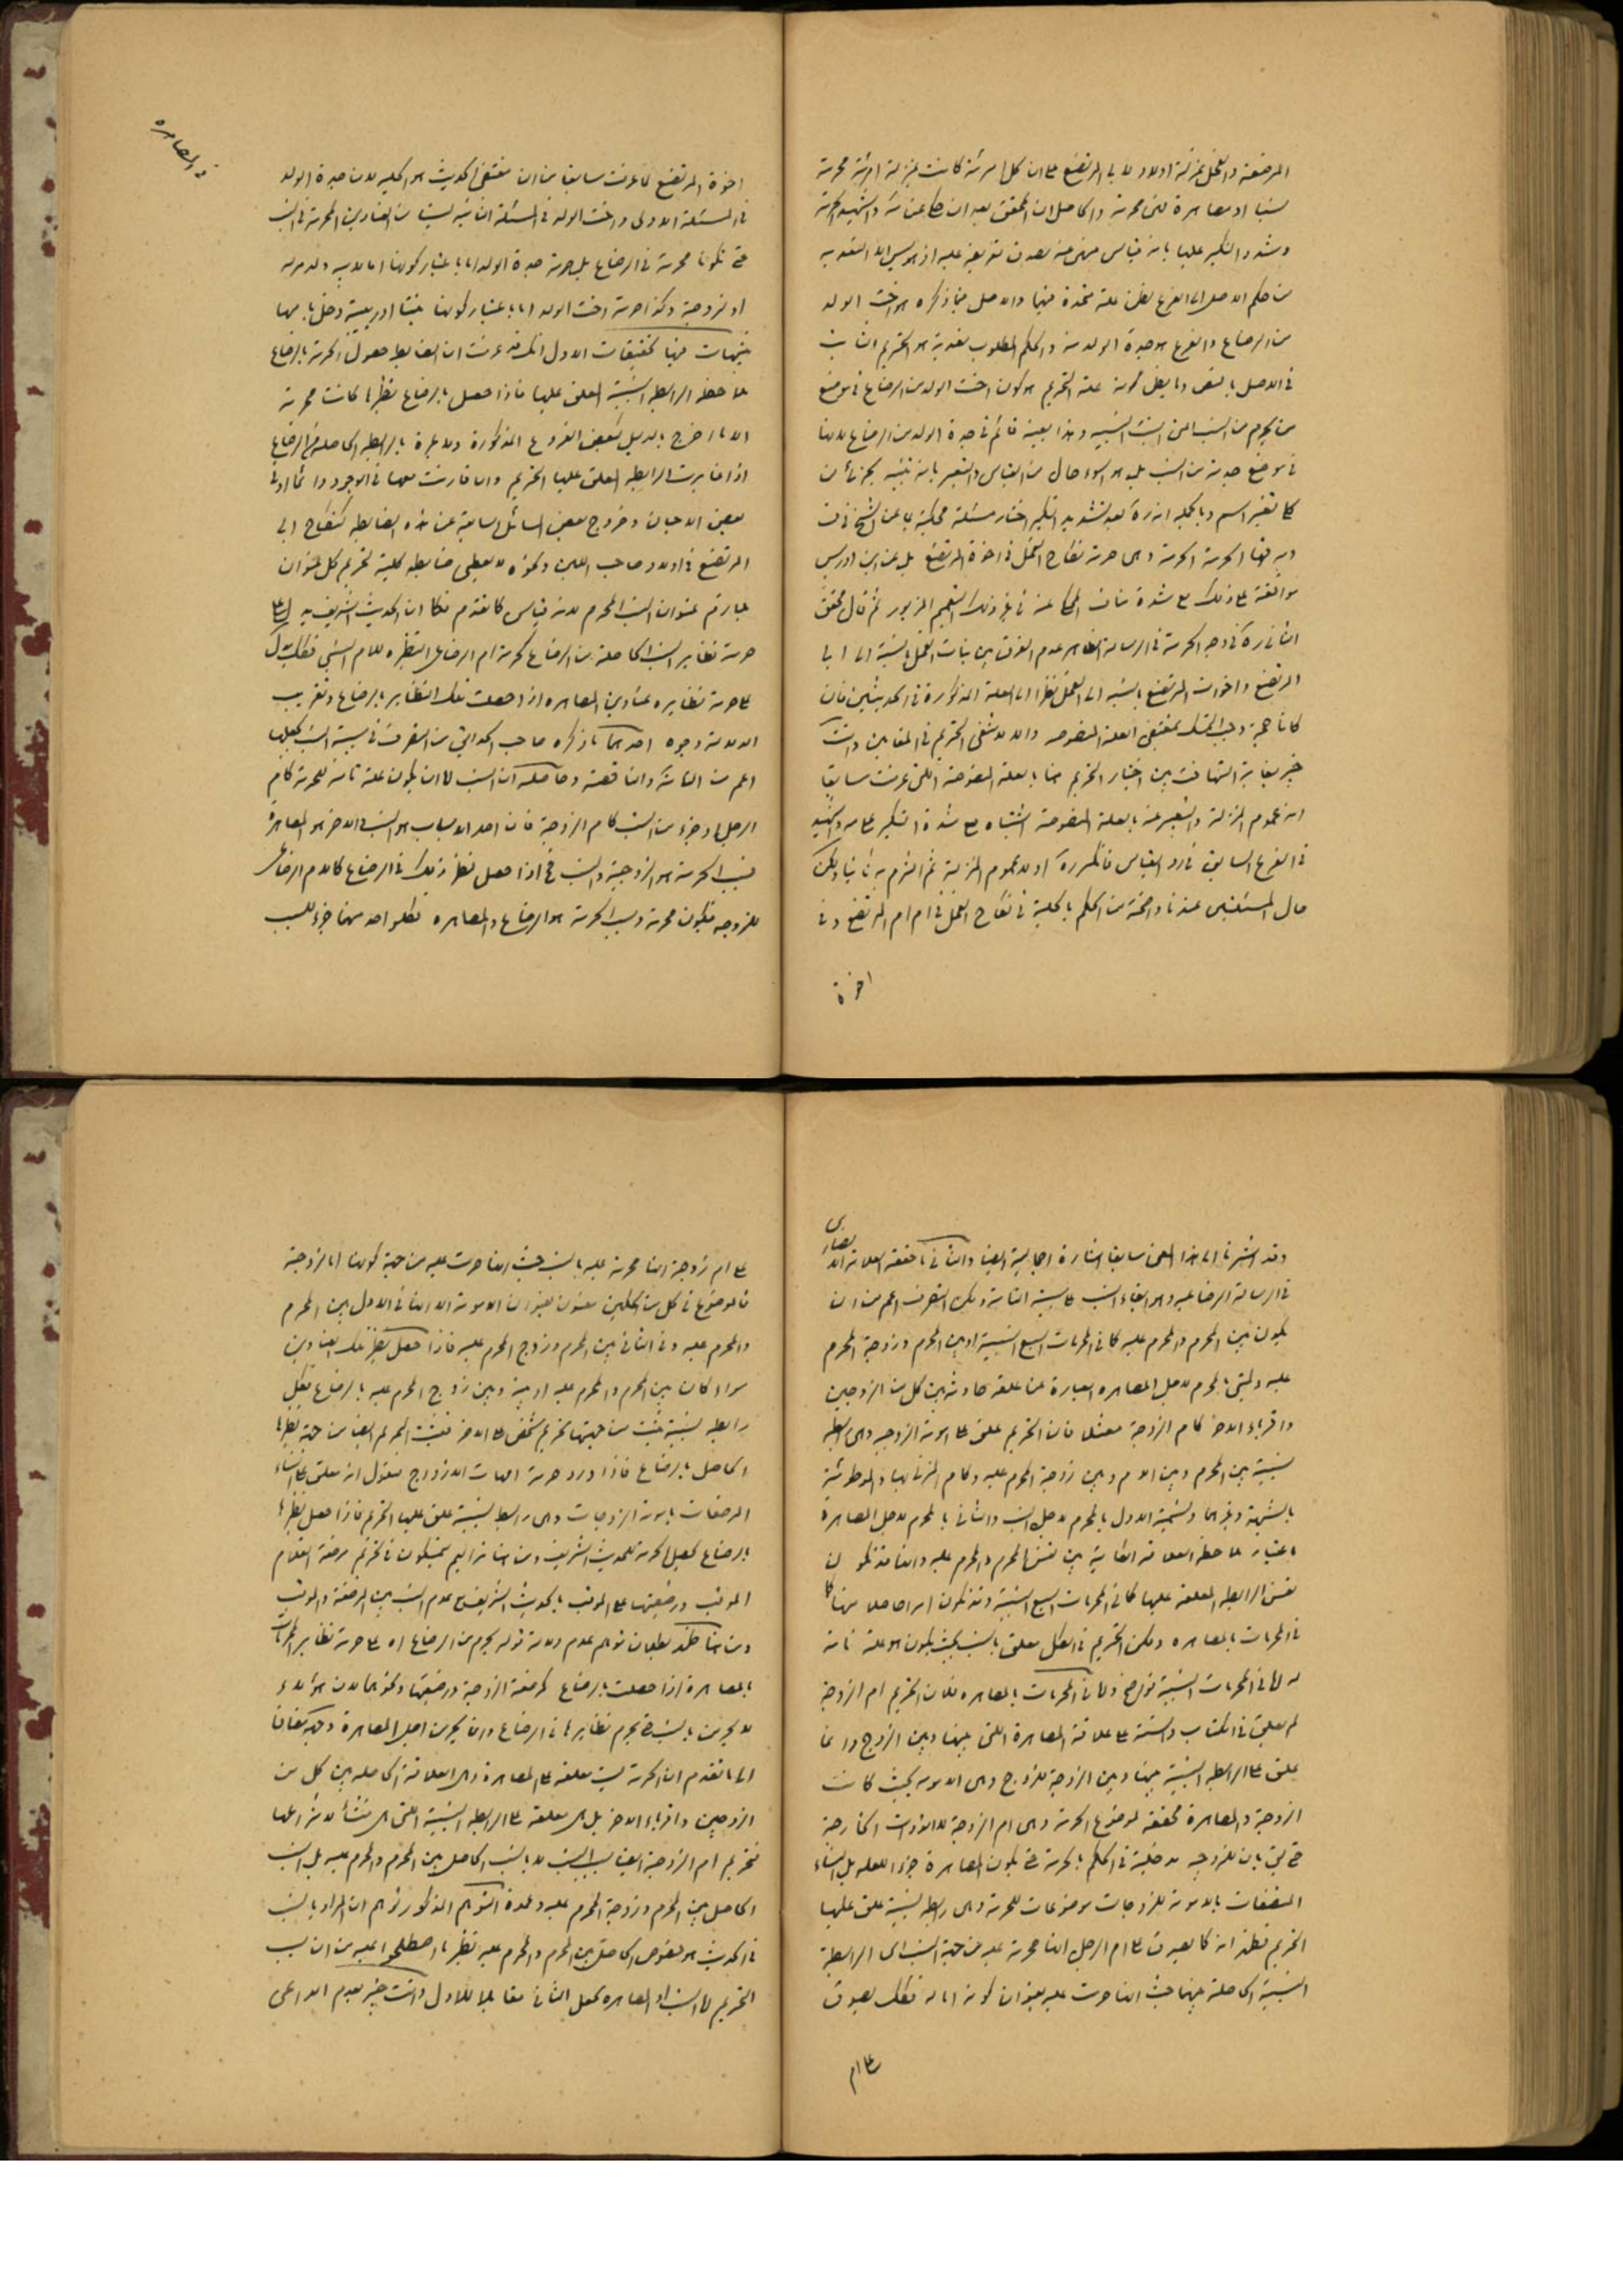 المرضعة والفحل بمنزلة اولاد لابي المرتضع على ان كل امرئة كانت بمنزلة امرئة محرمة
نسبا او مصاهرة فهى محرمة والحاصل ان المحقق بعد ان حكى عن
وشدد النكير عليها بانه قياس منهى عنه بصدق تعريفه عليه اذ هو ليس الا التعدية
من حكم الاصل الى الفرع بظن علة متحدة فيها والاصل فيما ذكره هو اخت الولد
من الرضاع والفرع هو جدة الولد منه والحكم المطلوب تعديته هو التحريم الثابت
فى الاصل بالنص وما يظن كونه علة التحريم هو كون اخت الولد من الرضاع فى موضع
من يحرم من النسب اعنى البنت النسبية وهذا بعينه قائم فى جدة الولد من الرضاع لانها
فى موضع جدته من النسب بل هو اسوء حال من القياس والتعبير بانه تنبيه بجزئى من
كلى تغيير اسم وبالجملة انه ره بعد تشديد النكير اختار مسئلة محكية عن الشيخ فى
الحرمة وهى حرمة نكاح الفحل فى اخوة المرتضع بل عن ابن ادريس
موافقته على ذلك مع شدة
الثانى ره فى وجه الحرمة فى الرسالة الظاهر عدم الفرق بين بنات الفحل بالنسبة الى ابى
المرتضع واخوات المرتضع بالنسبة الى الفحل نظرا الى العلة المذكورة فى الحديثين فان
كانا حجة وجب التمسك بمقتضى العلة المنصوصة والا لانتفى التحريم فى المقامين وانت
خبير بغاية التهافت بين اختيار التحريم هنا بالعلة المنصوصة التى عرفت سابقا
انه عموم المنزلة والتعبير عنه بالعلة المنصوصة اشتباه مع شدة النكير عليه
فى الفرع السابق فى رد القياس فانكر ره اولا عموم المنزلة ثم التزم به ثانيا ولكن
حال المسئلتين عندنا واضحة من الحكم بالحلية فى نكاح الفحل فى ام ام المرتضع وفى
اخوة
فى المصاهره
اخوة المرتضع لما عرفت سابقا من ان مقتضى الحديث هو الحلية لان جدة الولد
فى المسئلة الاولى واخت الولد فى المسئلة الثانية ليست من العناوين المحرمة فى النسب
حتى تكونا محرمة فى الرضاع بل حرمة جدة الولد اما باعتبار كونها اما لابيه
او لزوجته وكذا حرمة اخت الولد اما باعتبار كونها بنتا او ربيبة دخل بامها
تنبيهات فيها تحقيقات الاول انك قد عرفت ان الضابط حصول الحرمة بالرضاع
ملاحظة الرابطة النسبية المعلق عليها فاذا حصل بالرضاع نظيرها كانت محرمة
الا ما خرج بالدليل كبعض الفروع المذكورة ولا عبرة بالرابطة الحاصلة من الرضاع
اذا غايرت الرابطة المعلق عليها التحريم وان قارنت معها فى الوجود دائما او فى
بعض الاحيان وخروج بعض المسائل السابقة عن هذه الضابطة كنكاح ابى
المرتضع فى اولاد صاحب اللبن ونحوه لا يعطى ضابطة كلية لتحريم كل عنوان
يقارن عنوان النسب المحرم لانه قياس كما تقدم فكما ان الحديث الشريف يدل على
حرمة نظاير النسب الحاصلة من الرضاع كحرمة ام الرضاعى النظيرة للام النسبى فكذلك يدل
على حرمة نظايره عناوين المصاهره اذا حصلت تلك النظاير بالرضاع وتقريب
الدلالة وجوه احدها ما ذكره صاحب الحدائق من التصرف فى سببية النسب بجعلها
اعم من التامة والناقصة وحاصله ان النسب اما ان يكون علة تامة للحرمة كام
الرجل او جزء من السبب كام الزوجة فان احد الاسباب هو النسب والاخر هو المصاهرة
فسبب الحرمة هو الزوجية والنسب فاذا حصل نظير ذلك فى الرضاع كالام الرضاعى
للزوجه فتكون محرمة وسبب الحرمة هو الرضاع والمصاهره فكل واحد منهما جزء للسبب
وقد اشرنا الى هذا المعنى سابقا اشارة اجمالية ايضا والثانى ما حققه العلامة الانصارى
فى الرسالة الرضاعية وهو ابقاء النسب على سببيته التامة ولكن التصرف اعم من ان
يكون بين المحرم والمحرم عليه كما فى المحرمات السبع النسبية او بين المحرم وزوجة المحرم
عليه وليسمى بالمحرم لاجل المصاهره العبارة عن علقة حادثة بين كل من الزوجين
واقرباء الاخر كام الزوجة مثلا فان التحريم علق على امومة الزوجة وهى رابطة
نسبية بين المحرم وبين الام وبين زوجة المحرم عليه وكام المزنى بها والموطوئة
بالشبهة وغيرها وتسمية الاول بالمحرم لاجل النسب والثانى بالمحرم لاجل المصاهرة
باعتبار ملاحظة العلاقة الثابتة بين نفس المحرم والمحرم عليه وانها قد تكون
نفس الرابطة المعلقة عليها كما فى المحرمات السبع النسبية وقد تكون امرا حاصلا منها كما
فى المحرمات بالمصاهره ولكن التحريم فى الكل معلق بالنسب بحيث يكون هو علة تامة
له اما فى المحرمات النسبية فواضح واما فى المحرمات بالمصاهره فلان التحريم ام الزوجة
لم يعلق فى الكتاب والسنة على علاقة المصاهرة التى بينها وبين الزوج وانما
علق على الرابطة النسبية بينها وبين الزوجة للزوج وهى الامومة بحيث كانت
الزوجية والمصاهرة محققة لموضوع الحرمة وهى ام الزوجة
حتى يقال بان للزوجية مدخلية فى الحكم بالحرمة حتى يكون المصاهرة جزء العلة بل النساء
المتصفات بالامومة للزوجات موضوعات للحرمة وهى رابطة نسبية علق عليها
التحريم فظهر انه كما يصدق على ام الرجل انها محرمة عليه من جهة النسب اى الرابطة
النسبية الحاصلة بينهما حيث انها حرمت عليه بعنوان كونه اما له فكذلك يصدق
على ام
على ام زوجة انها محرمة عليه بالنسب حيث انها حرمت عليه من جهة كونها اما لزوجة
فالموضوع فى كل من الحكمين معنون بعنوان الامومة الا انها فى الاول بين المحرم
والمحرم عليه وفى الثانى بين المحرم وزوج المحرم عليه فاذا حصل نظير تلك العناوين
سواء كان بين المحرم والمحرم عليه او بينه وبين زوج المحرم عليه بالرضاع فكل
رابطة نسبية يثبت من جهتها تحريم شخص على الاخر فيثبت التحريم ايضا من جهة نظيرها
الحاصل بالرضاع فاذا ورد حرمة امهات الازواج فنقول انه معلق على النساء
المرضعات بامومة الزوجات وهى رابطة نسبية علق عليها التحريم فاذا حصل نظيرها
بالرضاع يحصل الحرمة للحديث الشريف ومن هنا تراهم يتمسكون فى تحريم مرضعة الغلام
الموقب ورضيعتها على الموقب بالحديث الشريف مع عدم النسب بين المرضعة والموقب
ومن هنا ظهر بطلان توهم عدم دلالة قوله يحرم من الرضاع اه على حرمة نظاير المحرمات
بالمصاهرة اذا حصلت بالرضاع كمرضعة الزوجة ورضيعتها ونحوهما لان هؤلاء
لا يحرمن بالنسب حتى يحرم نظايرها فى الرضاع وانما يحرمن لاجل المصاهرة
الى ما تقدم ان الحرمة ليست معلقة على المصاهرة وهى العلاقة الحاصلة بين كل من
الزوجين واقرباء الاخر بل هى معلقة على الرابطة النسبية التى هى منشأ لانتزاعها
فتحريم ام الزوجة ايضا بسبب النسب لا بالنسب الحاصل بين المحرم والمحرم عليه بل النسب
الحاصل بين المحرم وزوجة المحرم عليه وعمدة التوهم المذكور توهم ان المراد بالنسب
فى الحديث هو خصوص الحاصل بين المحرم والمحرم عليه نظير ما اصطلحوا عليه من ان سبب
التحريم اما النسب او المصاهره بجعل الثانى مقابلا للاول وانت خبير بعدم الداعى